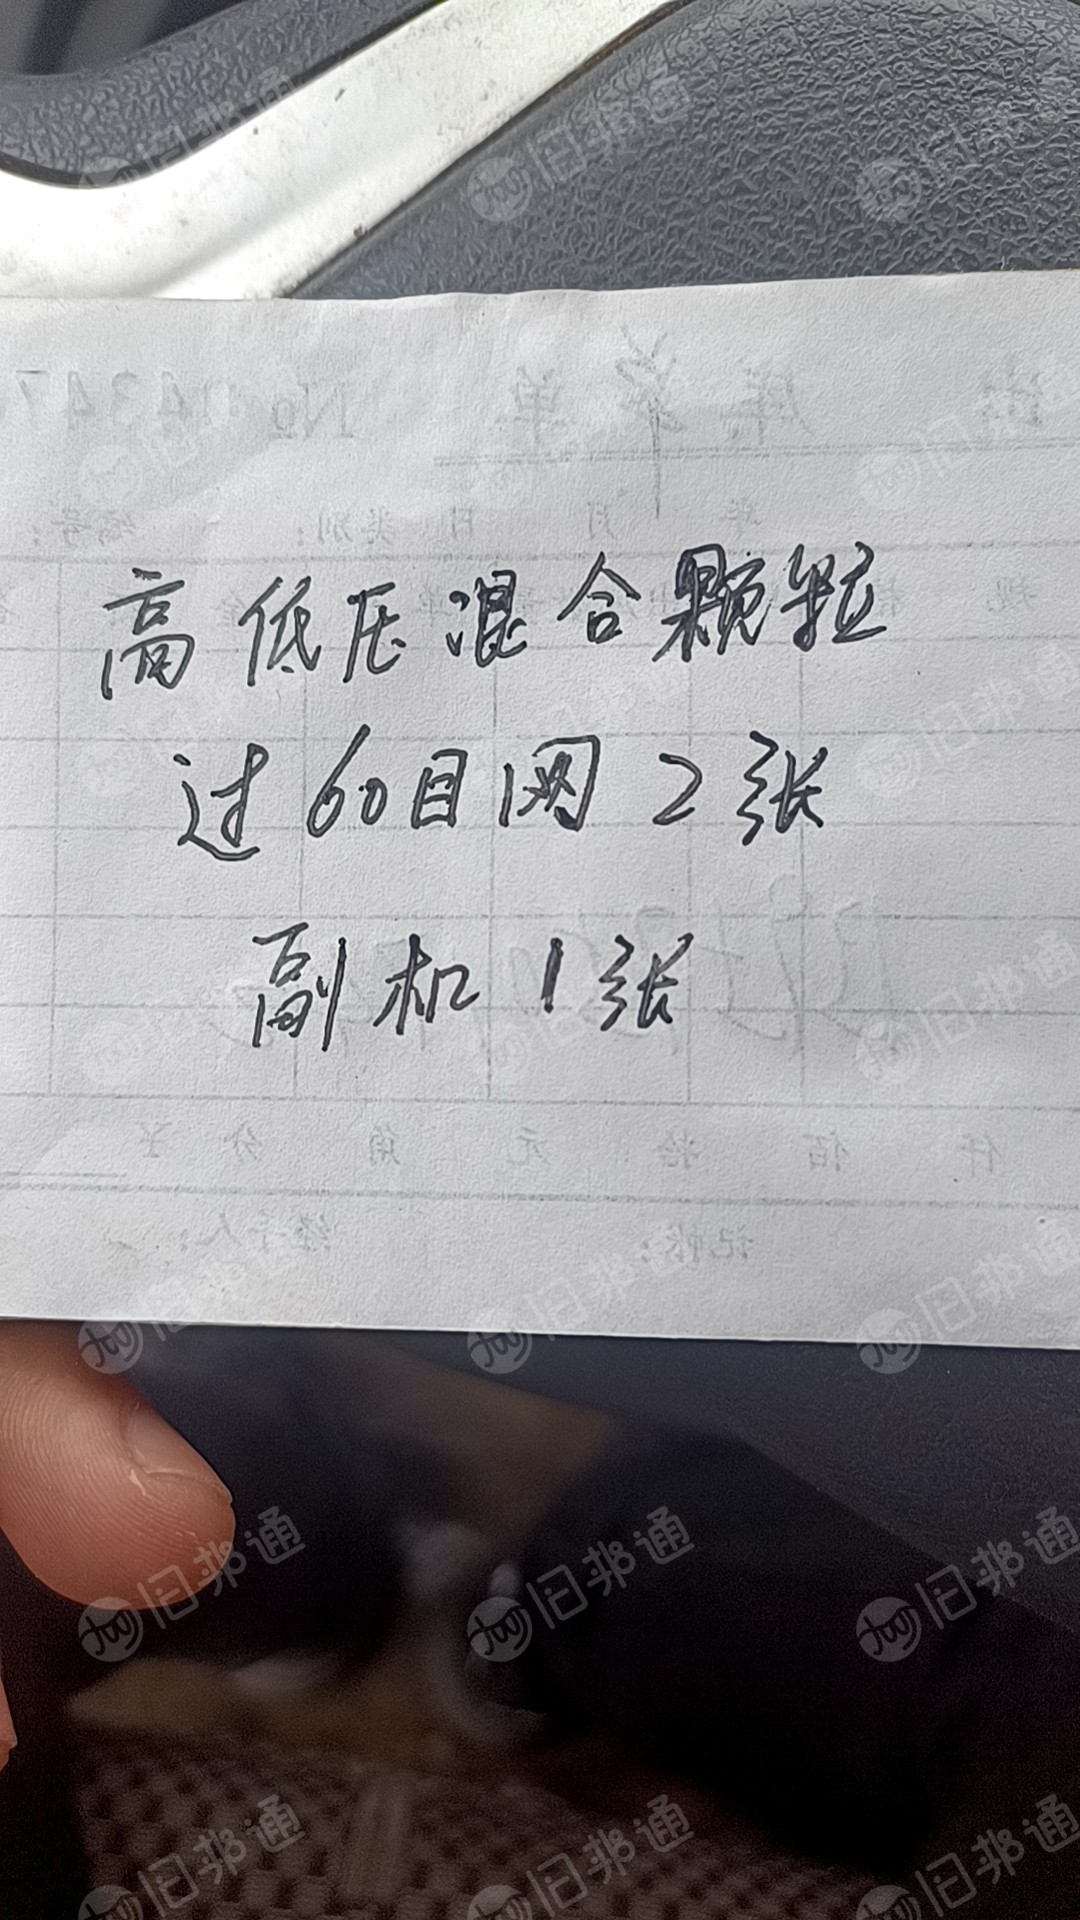 高低压混合颗粒
过60目网2张
副机1张
旧邦通